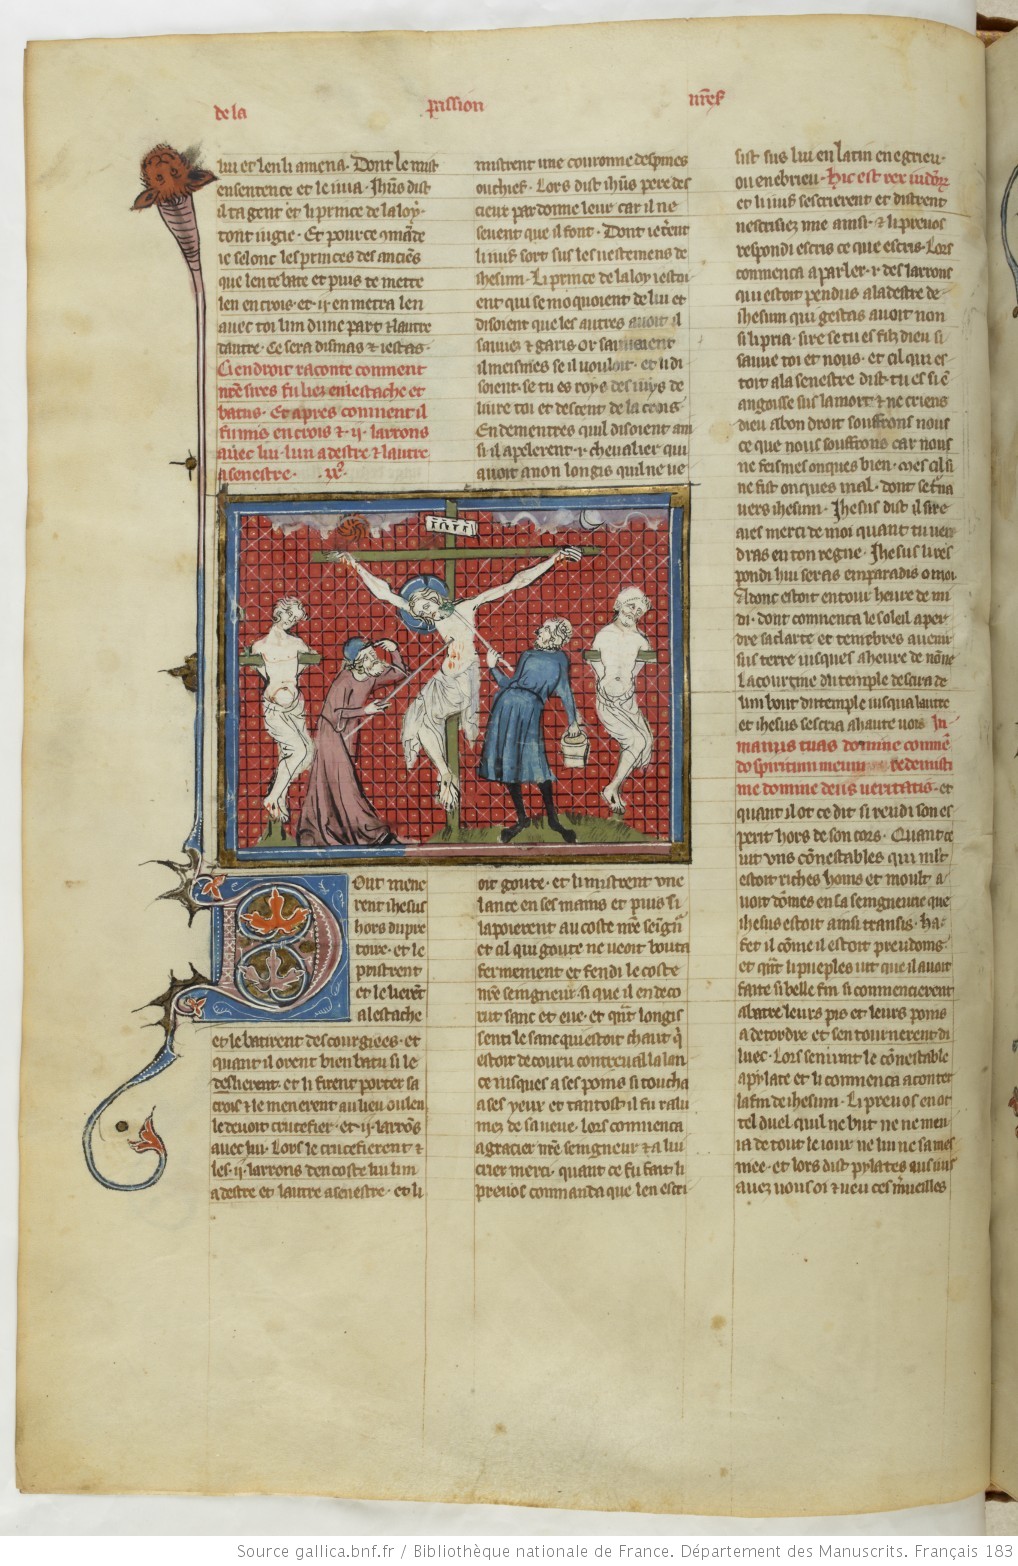 de la passion nr̃e s̃
lui et len li amena. Dont le mist
en sentence et le iuia. Jhūs dist
il ta gent et li prince de la loy.
tont iugie. Et por ce 9māde
ie selonc les princes des anciēs
que len te bate et puis te mette
len en crois. et ij. en metra len
auec toi lun dune part ⁊ lautre
dautre. Ce sera dismas ⁊ iestas.
Ci endroit raconte comment
nr̃e sires fu liez en lestache et
batus. Et apres comment il
fu mis en crois ⁊ .ij. larrons
auec lui. lun a destre et lautre
a senestre.
Out mene
rent ihesus
hors du pre
toire. et le
pristrent
et le lierēt
a lestache
et le batirent descourgiees. et
quant il orent bien batu si le
deslierent. et li firent porter sa
crois ⁊ le menerent au lieu ou len
le deuoit crucefier. et .ij. larrōs
auec lui. Lors le crucefierent ⁊
les .ij. larrons dencoste lui lun
a destre et lautre a senestre. et li
mistrent une couronne despines
ou chief. Lors dist ihūs pere des
cieux pardonne leur car il ne
seuent que il font. Dont ieterent
li iuif sort sus les uestemens de
ihesum. Li prince de la loy iestoi
ent qui se moquoient de lui et
disoient que les autres auoit il
sauuez ⁊ garis. or
il meismes se il vouloit. et li di
soient. se tu es roys des iuys de
liure toi et descent de la crois.
Endementres quil disoient ain
si il apelerent .i. cheualier qui
auoit a non longis qui ne ue
oit goute. et li mistrent vne
lance en ses mains et puis si
lapoierent au coste nr̃e seign̄
et cil qui goute ne ueoit bouta
fermement et fendi le coste
nr̃e seigneur si que il en deco
rut sanc et eue. et qn̄t longis
senti le sanc qui estoit chaut q̄
estoit decouru contreual la lan
ce iusques a ses poins si toucha
a ses yeux et tantost il fu ralu
mez de sa ueue. lors commenca
a gracier nr̃e seigneur ⁊ a lui
crier merci. quant ce fu fait li
preuos commanda que len escri
sist sus lui en latin en egrieu.
ou en ebrieu. Hic est rex iudeor̄
et li iuif sescrierent et distrent
nescrisiez mie ainsi. ⁊ li preuos
respondi escris ce que escris. Lors
commenca a parler .i. des larrons
qui estoit pendus a la destre de
ihesum qui gestas auoit non
si li pria. sire se tu es filz dieu si
sauue toi et nous. et cil qui es
toit a la senestre dist tu es si ē
angoisse sus la mort ⁊ ne criens
dieu a bon droit souffrons nous
ce que nous souffrons car nous
ne feismes onques bien. mes cil si
ne fist onques mal. dont se tūa
uers ihesum. Jhesus dist il sire
aies merci de moi quant tu ven
dras en ton regne. Jhesus li res
pondi hui seras em paradis o moi.
Adonc estoit entour heure de mi
di. dont commenca le soleil a per
dre sa clarte et tenebres auenir
sus terre iusques a heure de nōne
La courtine du temple descira de
lun bout du temple iusqua lautre
et ihesus sescria a haute uois In
manus tuas domine commē
do spiritum meum redemisti
me domine deus veritatis. et
quant il ot ce dit si rendi son es
perit hors de son cors. Quant ce
uit vns cōnestables qui ml̃t
estoit riches homs et moult a
uoit dōmes en sa seignerie que
ihesus estoit ainsi transis. Ha
fet il cōme il estoit preudoms.
et qn̄t li pueples uit que il auoit
faite si belle fin si commencierent
a batre leurs pis et leurs poins
a detordre et sen tournerent di
luec. Lors senuint le cōnestable
a pylate et li commenca a conter
la fin de ihesum. Li preuos en ot
tel duel quil ne but ne ne men
ia de tout le iour ne lui ne sa mes
niee. et lors dist pylates aus iuis
auez uous oi ⁊ ueu ces m̃ueilles
Source gallica.bnf.fr / Bibliothèque nationale de France. Département des Manuscrits. Français 183